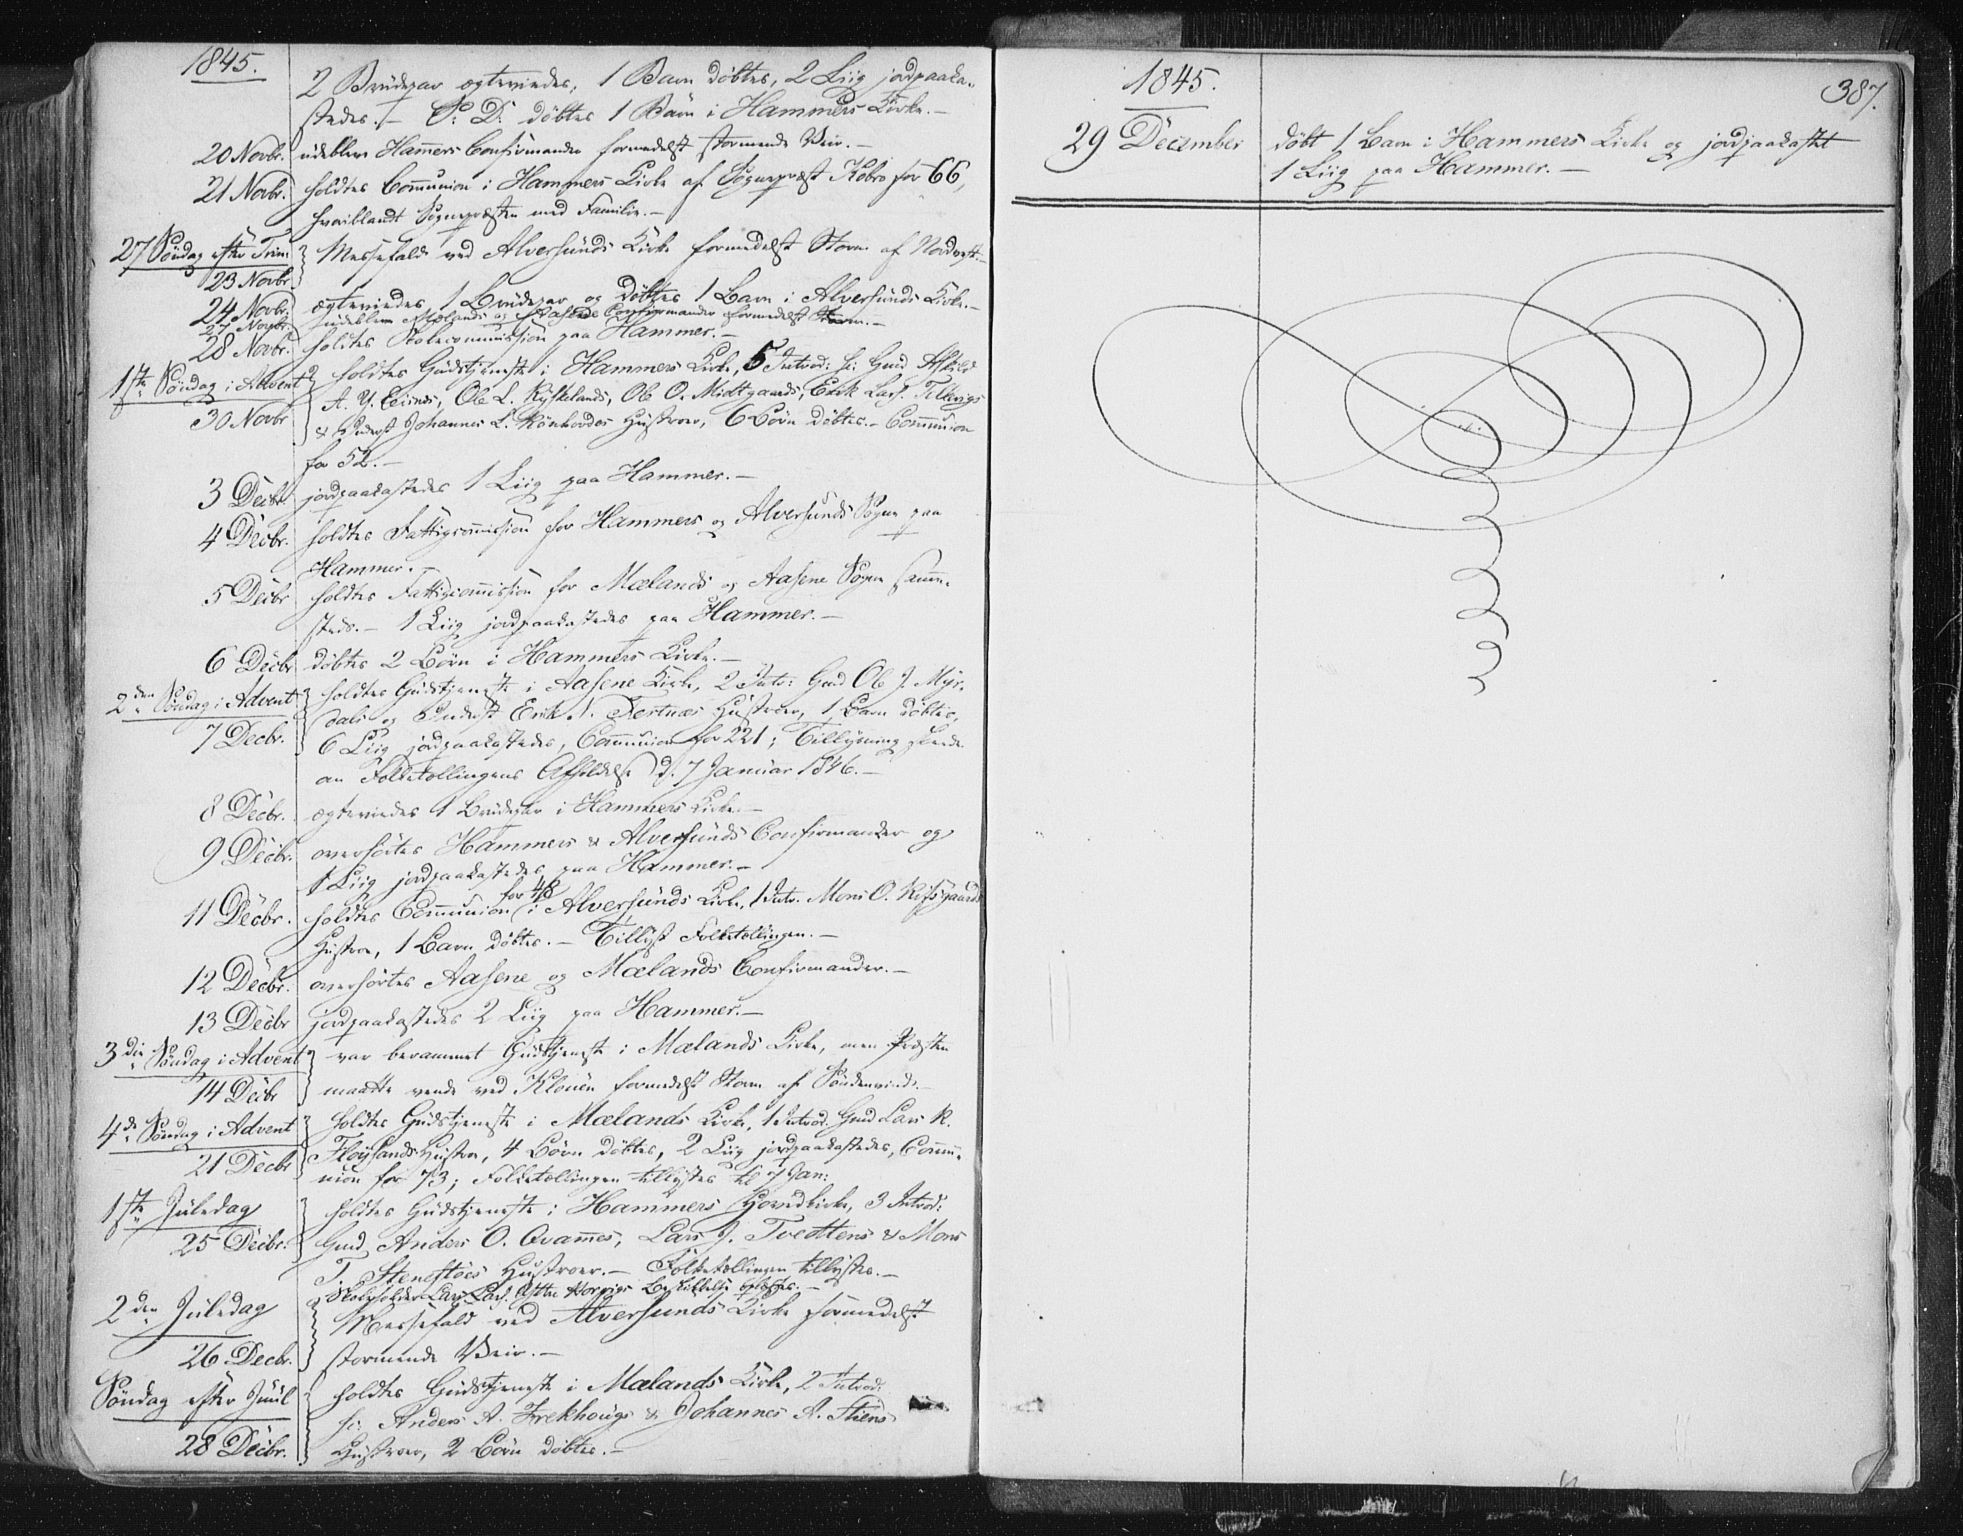 1845.
2 Brudepar egteviedes, 1 Barn døbtes, 2 Liig jordpaaka-
stedes. – S: D: døbtes 1 Barn i Hammers Kirke. –
20 Novbr. udeblev Hamers Confirmander formedelst stormende Veir. –
21 Novbr. holdtes Communion i Hammers Kirke af Sognepræst Kobro for 66,
hvoriblandt Sognepræsten med Familie. –
27 Søndag efter Trin: Messefald ved Alversunds Kirke formedelst Storm af Nordvest. –
23 Novbr.
24 Novbr. egteviedes 1 Brudepar og døbtes 1 Barn i Alversunds Kirke. –
27 Novbr. udeblev Mælands og Aasene Confirmander formedelst Storm. –
28 Novbr. holdtes Skolecommission paa Hammer. –
1ste Søndag i Advent holdtes Gudstjeneste i Hammers Kirke, 5 Introd: s: Gmd
A. Ole L. Ole O. Midtgaards, Erik Lars.
30 Novbr. & Johannes L. Hustroer, 6 Børn døbtes. – Communion
for 52. –
3 Decbr. jordpaakastedes 1 Liig paa Hammer. –
4 Decbr. holdtes Fattigcommission for Hammers og Alversunds Sogne paa
Hammer. –
5 Decbr holdtes Fattigcommission for Mælands og Aasene Sogne samme-
steds. – 1 Liig jordpaakastedes paa Hammer. –
6 Decbr døbtes 2 Børn i Hammers Kirke. –
2den Søndag i Advent holdtes Gudstjeneste i Aasene Kirke, 2 Intr: Gmd Ole J. Myr-
7 Decbr. dals og Erik N. Hustroer, 1 Barn døbtes,
6 Liig jordpaakastedes, Communion for 221; Tillysning skeede
om Folketællingens Afholdelse d. 7 Januar 1846. –
8 Decbr. egteviedes 1 Brudepar i Hammers Kirke. –
9 Decbr. overhørtes Hammers & Alversunds Confirmander og
1 Liig jordpaakastedes paa Hammer. –
11 Decbr. holdtes Communion for 48 i Alversunds Kirke, 1 Intr. Mons O.
Hustroe, 1 Barn døbtes. – Tillyst Folketællingen. –
12 Decbr. overhørtes Aasene og Mælands Confirmander. –
13 Decbr jordpaakastedes 2 Liig paa Hammer. –
3die Søndag i Advent var berammet Gudstjeneste i Mælands Kirke, men Præsten
14 Decbr maatte vende ved Klouen formedelst Storm af Søndenvind. –
4de Søndag i Advent holdtes Gudstjeneste i Mælands Kirke, 1 Introd. Gmd Lars R.
21 Decbr Fløysands Hustroe, 4 Børn døbtes, 2 Liig jordpaakastedes, Commu-
nion for 73; Folketællingen tillystes til 7 Jan:
1ste Juledag holdtes Gudstjeneste i Hammers Hovedkirke, 3 Introd:
25 Decbr: Gmd Anders O. Qvammes, Lars J. Tvedtens & Mons
T. Hustroer. – Folketællingen tillystes. –
Skoleholder Lars Lars. –
2den Juledag Messefald ved Alversunds Kirke formedelst
26 Decbr. stormende Veir. –
Søndag efter Juul holdtes Gudstjeneste i Mælands Kirke, 2 Introd:
s: Anders A. Frekhougs & Johannes A.
28 Decbr. Hustroer, 2 Børn døbtes. –
1845.
387.
29 December døbt 1 Barn i Hammers Kirke og jordpaakastet
1 Liig paa Hammer. –